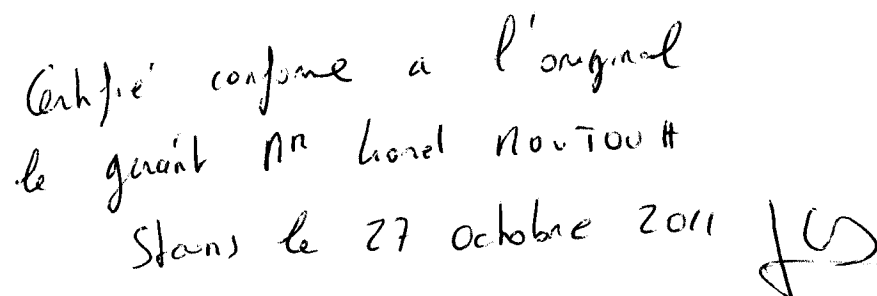 Certifié conforme a l'original
le gérant Mr Lionel MOUTOUH
Stans le 27 octobre 2011